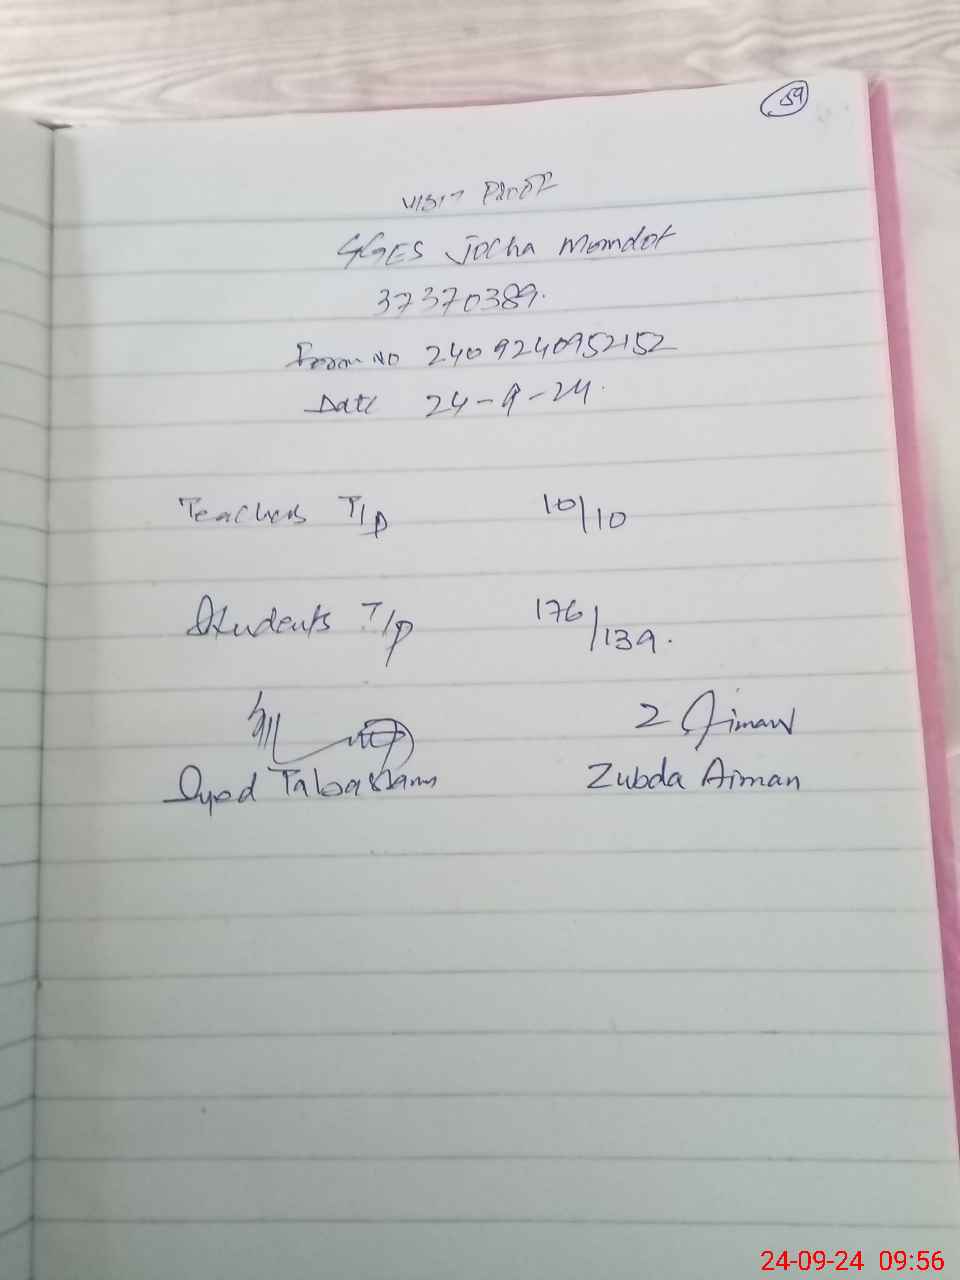 59
VISIT PROOF
GGES Jocha Momdot
37370389.
Form No 2409240952152
Date 24-9-24.
Teachers T/p 10/10
Students T/p 176/139.
Z Aiman
Syed Tabassam Zubda Aiman
24-09-24 09:56